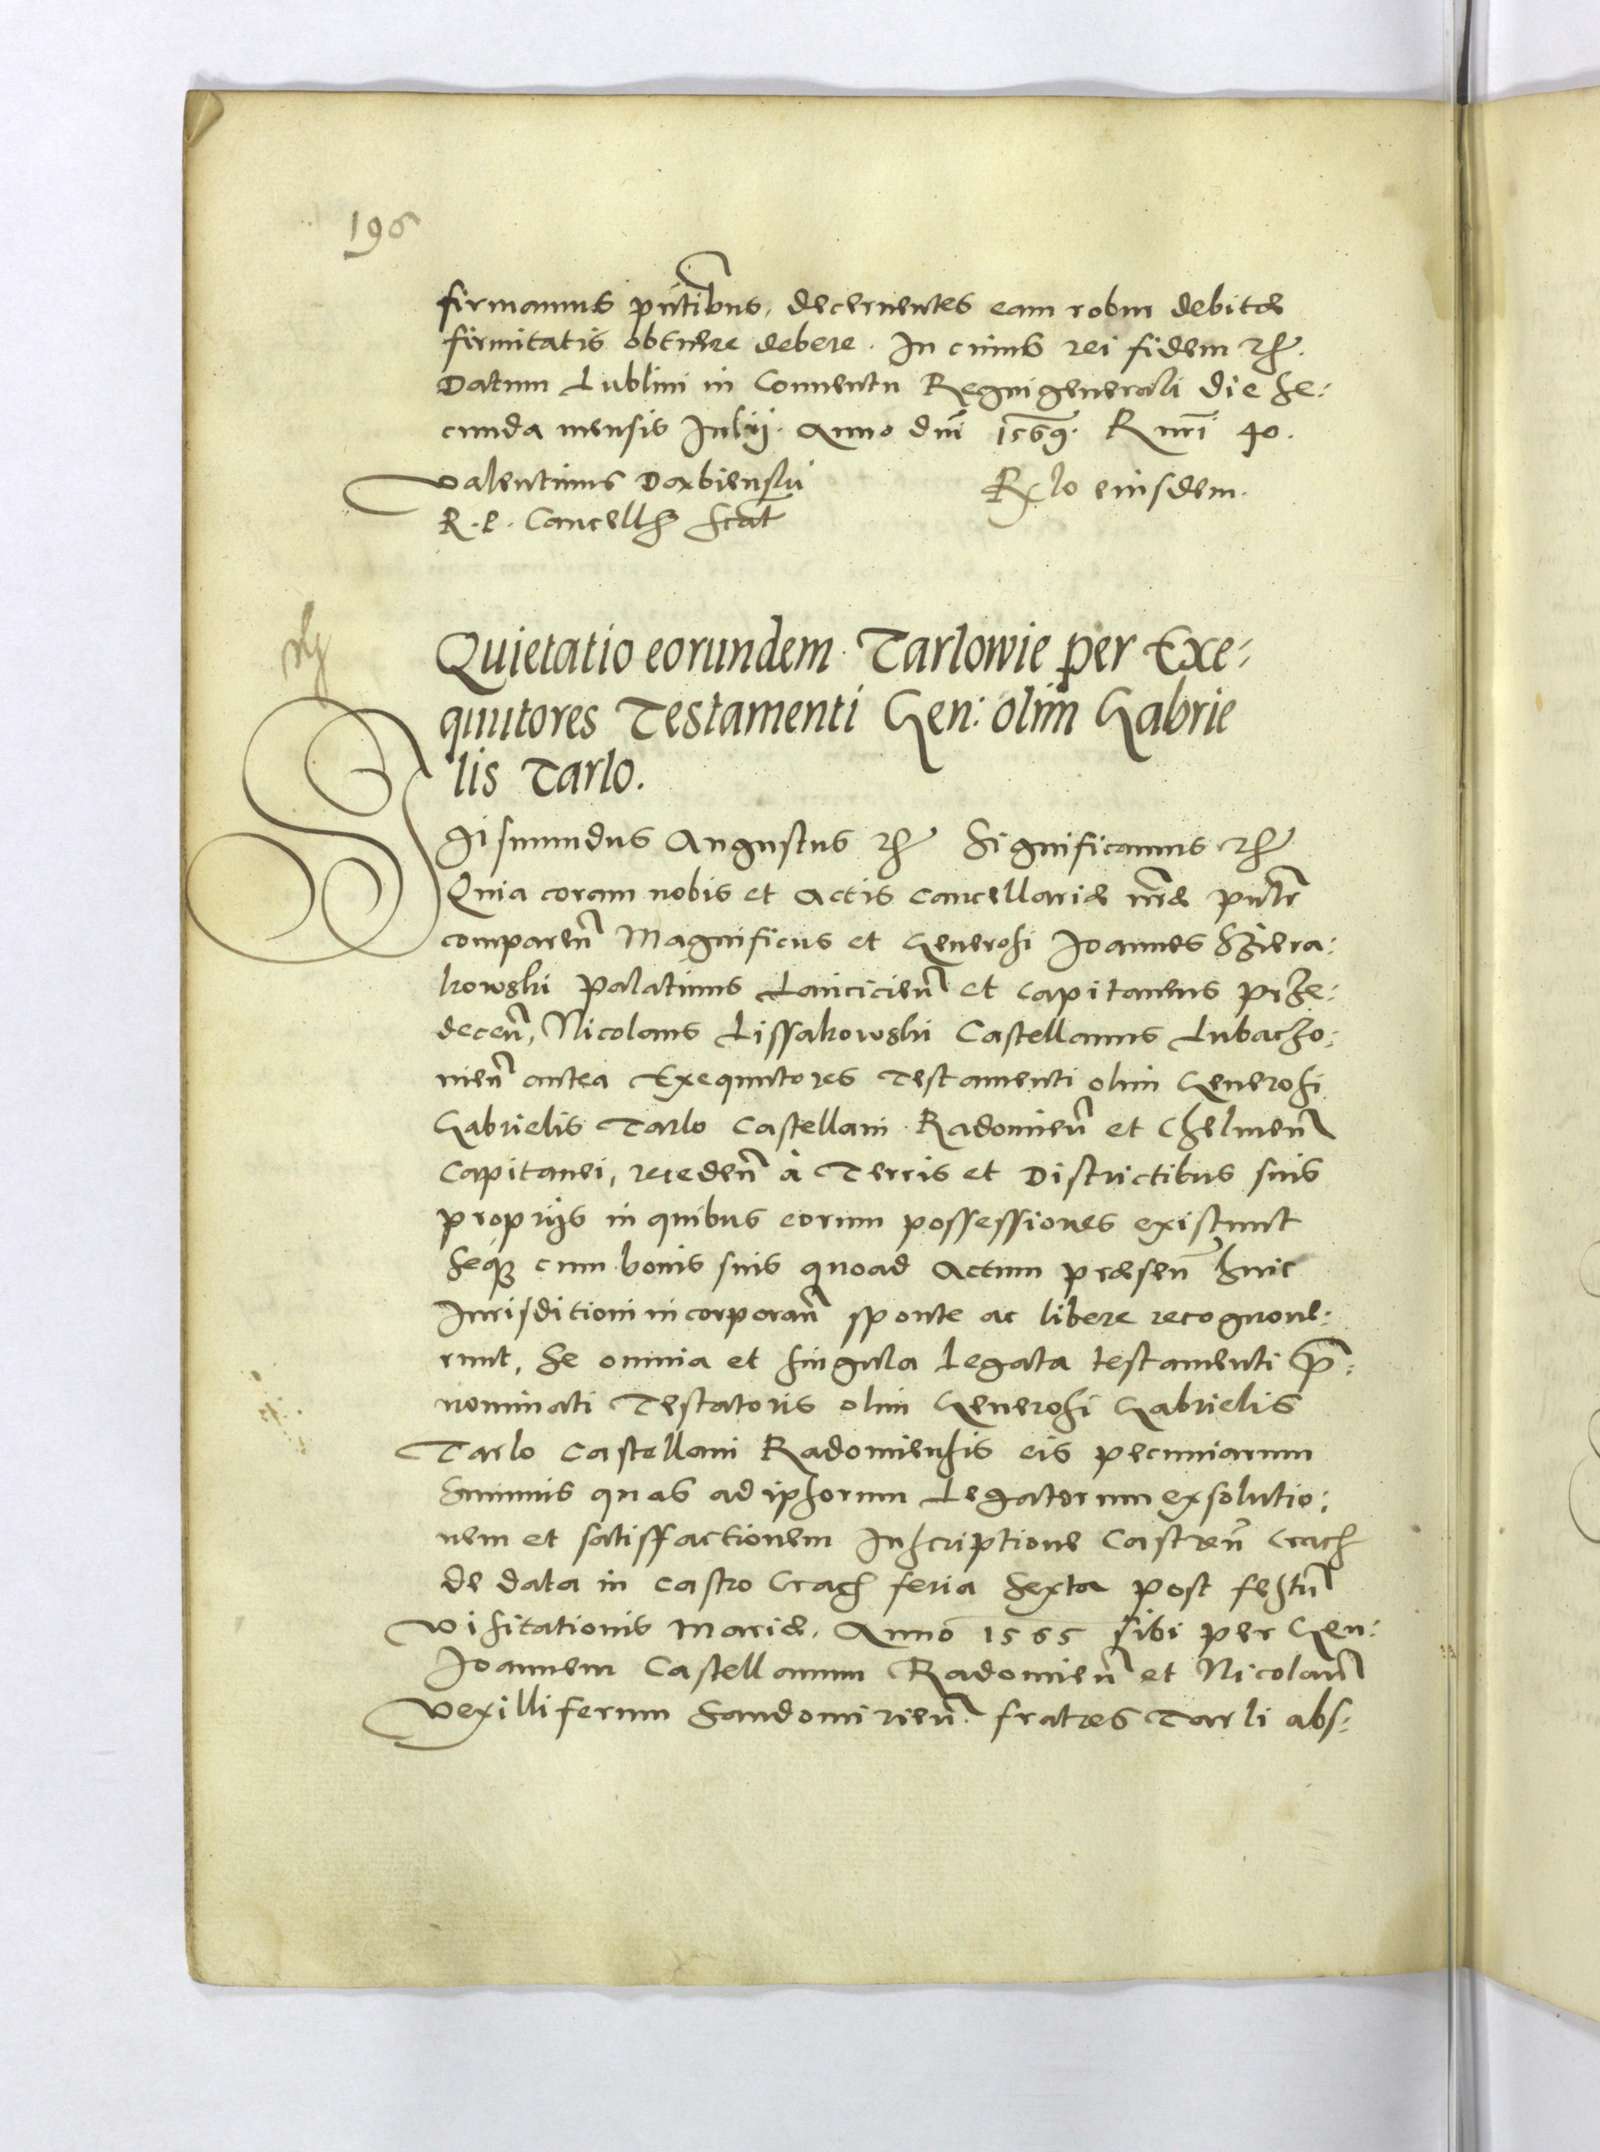 196
firmamus pn̄tibus, decernentes eam robur debitæ
firmitatis obtinere debere. In cuius rei fidem etc.
Datum Lublini in Conuentu Regni generali die se:
cunda mensis Iulij. Anno dnī 1569. R nrī 40.
Valentinus Dąbienski Rlo eiusdem.
R. P. Cancellr scāt
Quietatio eorundem Tarlowie per Exe:
quutores Testamenti Gen: olim Gabrie
lis Tarlo.
Sigismundus Augustus etc Significamus etc
Quia coram nobis et Actis Cancellariæ nr̄æ pn̄tr
comparen̄ Magnificus et Generosi Ioannes Sziera:
kowski Palatinus Lancicien̄ et Capitaneus Prze:
decen̄, Nicolaus Lissakowski Castellanus Lubaczo:
uien̄ antea Exequutores Testamenti olim Generosi
Gabrielis Tarlo Castellani Radomien̄ et Chelmen̄
Capitanei, receden̄ à Terris et Districtibus suis
proprijs in quibus eorum possessiones existunt
seq3 cum bonis suis quoad Actum præsen̄ huic
Iurisditioni incorporan̄ sponte ac libere recognoue:
runt, se omnia et singula Legata testamenti p̄:
nominati Testatoris olim Generosi Gabrielis
Tarlo Castellani Radomiensis eis pecuniarum
Summis quas ad ipsorum Legatorum exsolutio:
nem et satisffactionem Inscriptione Castren̄ Crac
de data in Castro Crac feria sexta post festū
Visitationis Mariæ. Anno 1565 sibi per Gen:
Ioannem Castellanum Radomien̄ et Nicolaū
Vexilliferum Sandomirien̄. fratres Tarli abs: